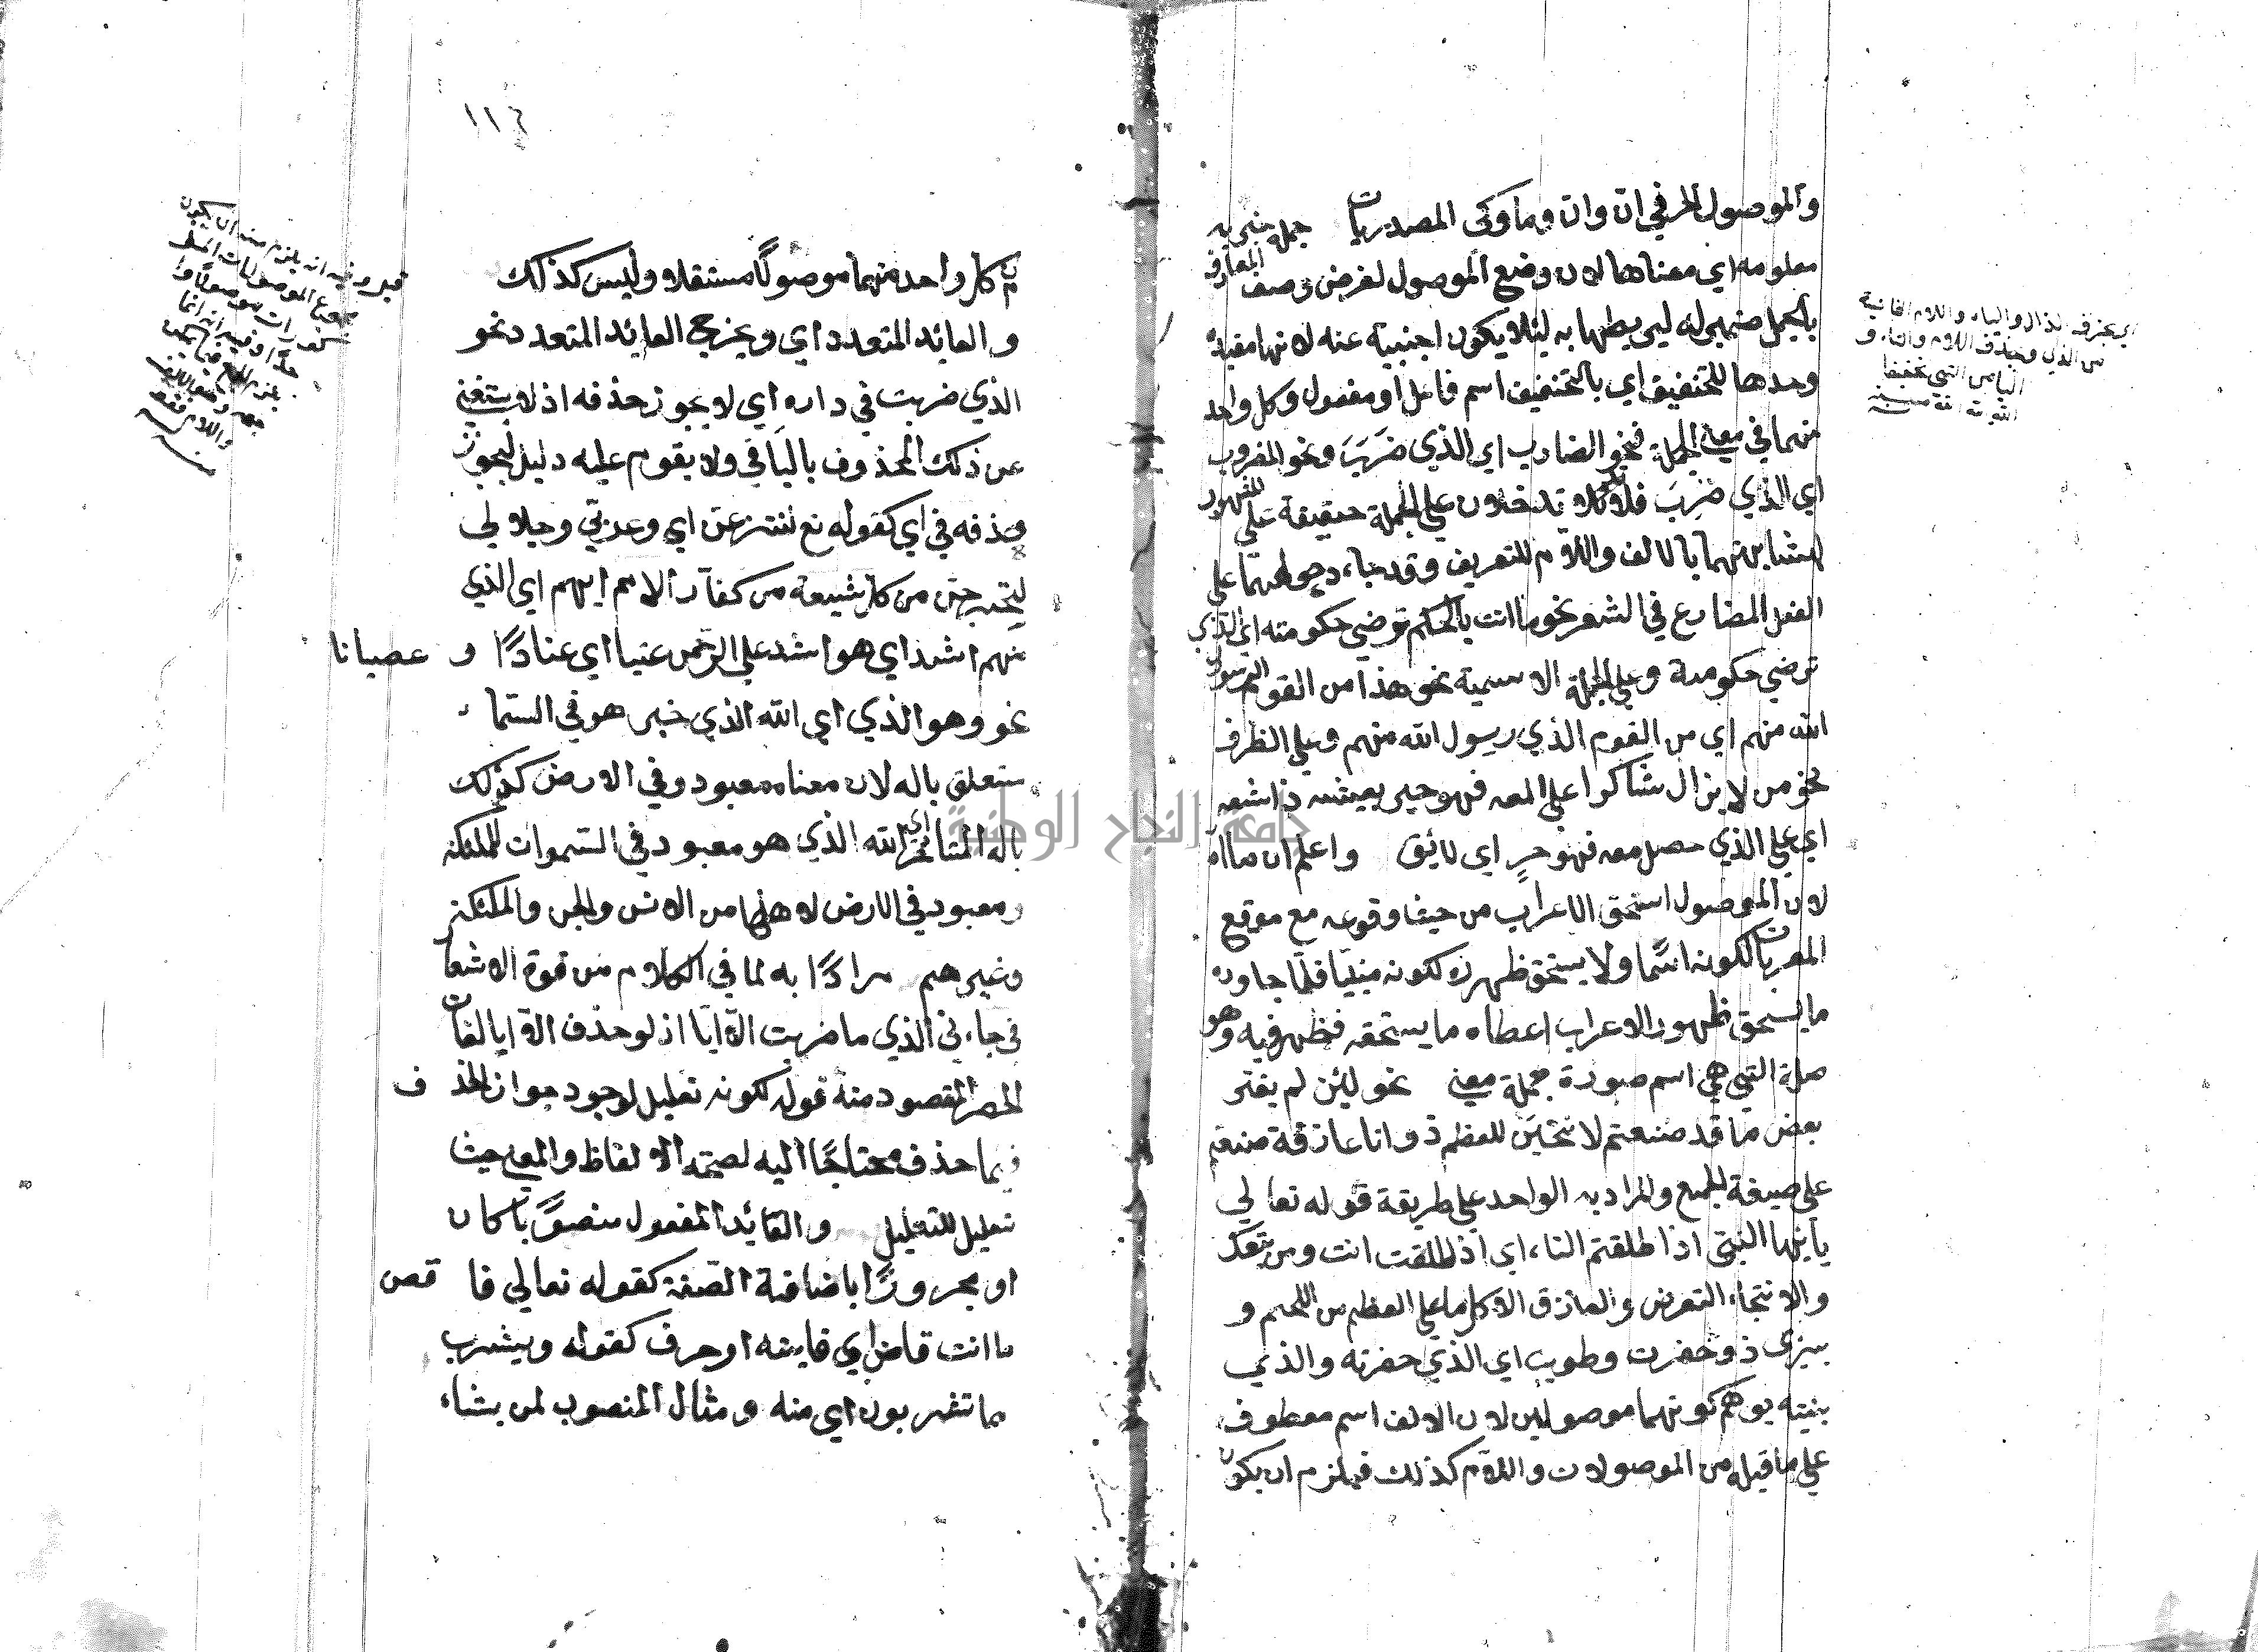 والموصول الحرفي ان وان وما وكى المصدريات جملة خبرية
معلومة اي معناها لان وضع الموصول لغرض وصف المعارف
بالجمل ليلا يكون اجنبية عنه لانها مفيدة
وحدها للتخفيف اي بالتخفيف اسم فاعل او مفعول وكل واحد
منهما في معنى الجملة فنحو الضارب اي الذي ضَرَبَ ونحو المضروب
اي الذي ضُرِبَ فلا تدخلان على الجملة حقيقة على
لمشابهتهما بالالف واللام للتعريف وقد جاء دخولهما على
الفعل المضارع في الشعر نحو ما انت بالحكم ترضى حكومته اي الذي
ترضى حكومته وعلى الجملة الاسمية نحو هذا من القوم الرسول
الله منهم اي من القوم الذي رسول الله منهم وعلى الظرف
نحو من لا يزال شاكرا على المعه فهو حر بعيشة ذا سعه
اي على الذي حصل معه فهو حرٍ اي لائق واعلم ان
لان الموصول استحق الاعراب من حيث وقوعه مع موقع
المعربات لكونه اسما ولا يستحق ظهوره لكونه مبنيا فلما جاوره
ما يستحق ظهور الاعراب اعطاه ما يستحقه فظهر فيه وهو
صلة التي هي اسم صورة جملة معنى نحو لئن لم يغير
بعض ما قد صنعتم لانتحين للعظم ذو انا عارقه صنعتم
على صيغة الجمع والمراد به الواحد على طريقة قوله تعالى
يا ايها النبي اذا طلقتم النساء اي اذ طلقت انت ومن
والانتحاء التعرض والعارق الاكل ما على العظم من اللحم و
بيرى ذو حفرت وطويت اي الذي حفرته والذي
بنيته يوهم كونهما موصولين لان الالف اسم معطوف
على ما قبله من الموصولات واللام كذلك فيلزم ان يكون
اي بحذف الذال والياء واللام الثانية
من الذي وبحذف اللام والتاء و
الياء من التي تخفيفا
١١٤
كل واحد منهما موصولًا مستقلا وليس كذلك
والعائد المتعدد اي ويخرج العائد المتعدد نحو
الذي ضربت في داره اي لا يجوز حذفه اذ لا يستغنى
عن ذلك المحذوف بالباقي ولا يقوم عليه دليل ليجوز
حذفه في اي كقوله تع لننزعن اي وعزتي وجلالي
من كل شيعة من كفار الامم ايهم اي الذي
منهم اشد اي هو اشد على الرحمن عتيا اي عنادًا و عصيانا
نحو وهو الذي اي الله الذي خبر هو في السماء
متعلق باله لان معناه معبود وفي الارض كذلك
باله المتأخر اي الله الذي هو معبود في السموات للملئكة
ومعبود في الارض لاهلها من الانس والجن والملئكة
وغيرهم مرادًا به لما في الكلام من قوة الاشعا
في جاءني الذي ما ضربت الا اياه اذ لو حذف الا ايا لفات
الحصر المقصود منه قوله لكونه تعليل لوجود جواز الحذ ف
فيما حذف محتاجًا اليه لصحة الالفاظ والمعنى حيث
تعليل للتعليل والعائد المفعول منصوبًا كان
او مجرورًا باضافة الصفة كقوله تعالى فا قض
ما انت قاض اي قاضيه او حرف كقوله ويشرب
مما تشربون اي منه ومثال المنصوب لمن يشاء
قيل وفيه انه يلزم منه ان يكون
واللام فقط
منه
جامعة النجاح الوطنية